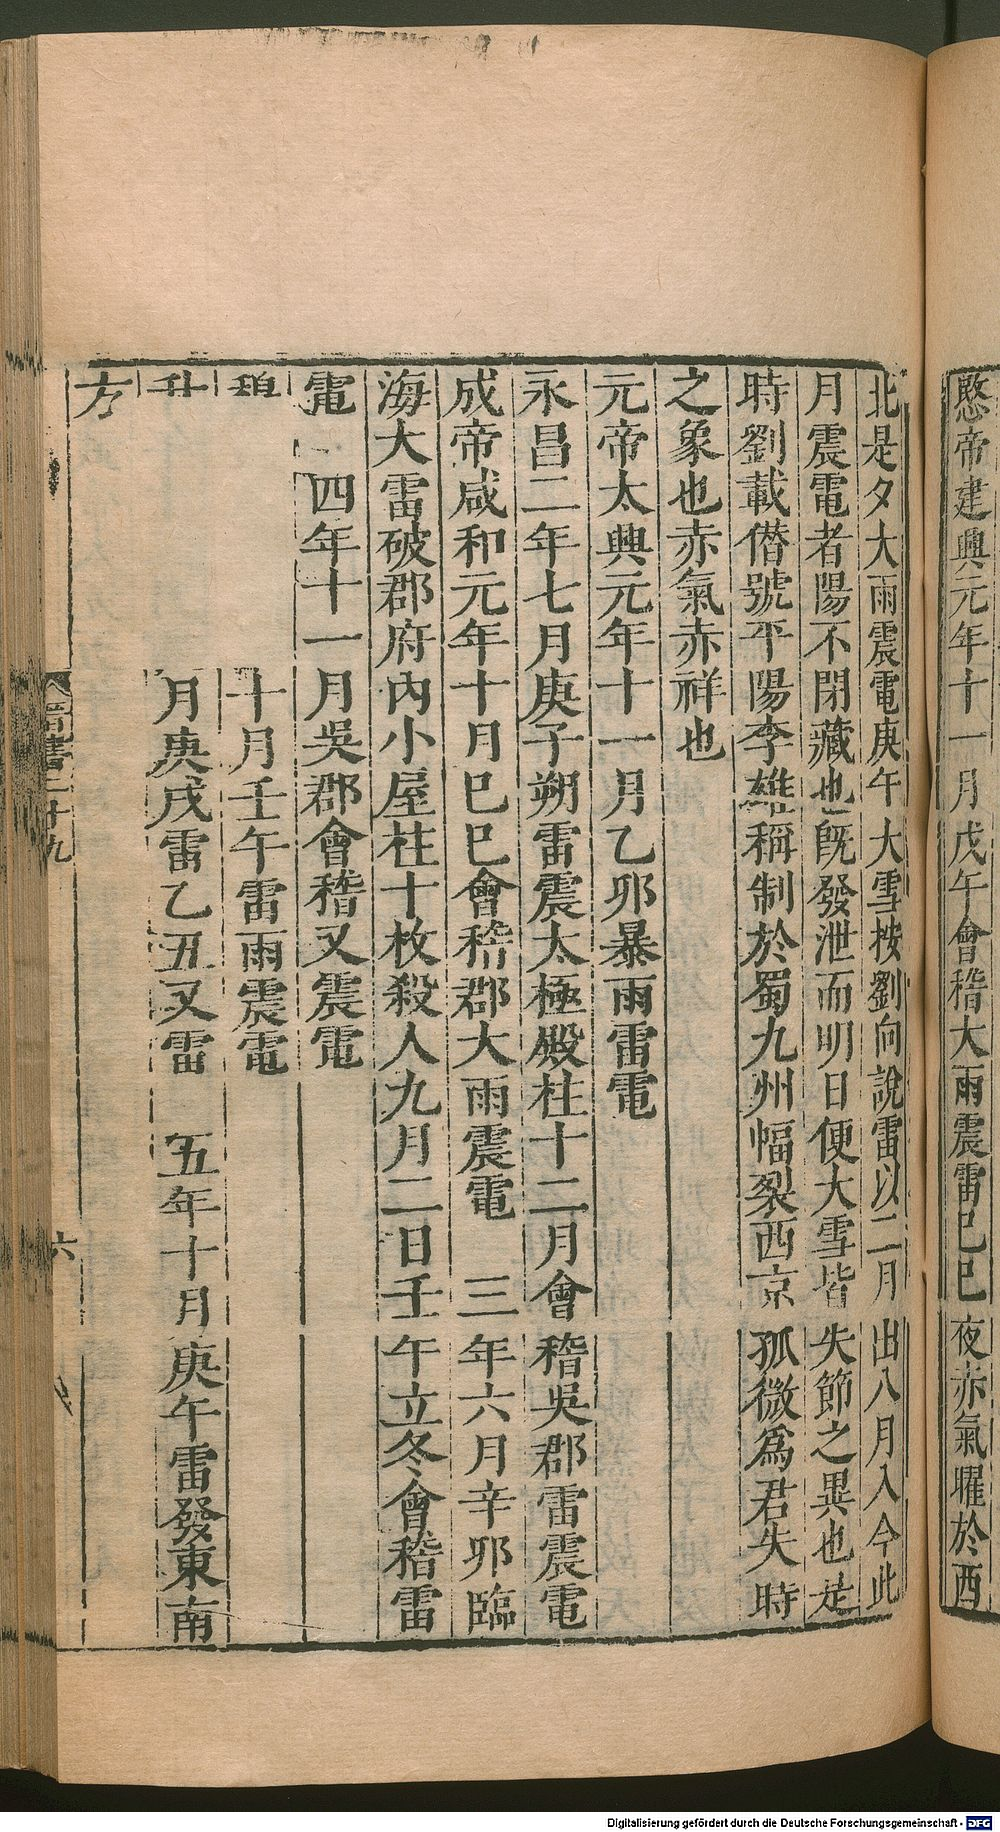 愍帝建興元年十一月戊午會稽大雨震雷己巳夜赤氣曜於西
北是夕大雨震電庚午大雪按劉向說雷以二月出八月入今此
月震電者陽不閉藏也旣發泄而明日便大雪皆失節之異也是
時劉載僭號平陽李雄稱制於蜀九州幅裂西京孤微爲君失時
之象也赤氣赤祥也
元帝太興元年十一月乙卯暴雨雷電
永昌二年七月庚子朔雷震太極殿柱十二月會稽吳郡雷震電
成帝咸和元年十月巳巳會稽郡大雨震電 三年六月辛卯臨
海大雷破郡府內小屋柱十枚殺人九月二日壬午立冬會稽雷
電 四年十一月吳郡會稽又震電
穆 十月壬午雷雨震電
升 月庚戌雷乙丑又雷 五年十月庚午雷發東南
方
晉書二十九
六
Digitalisierung gefördert durch die Deutsche Forschungsgemeinschaft - DFG